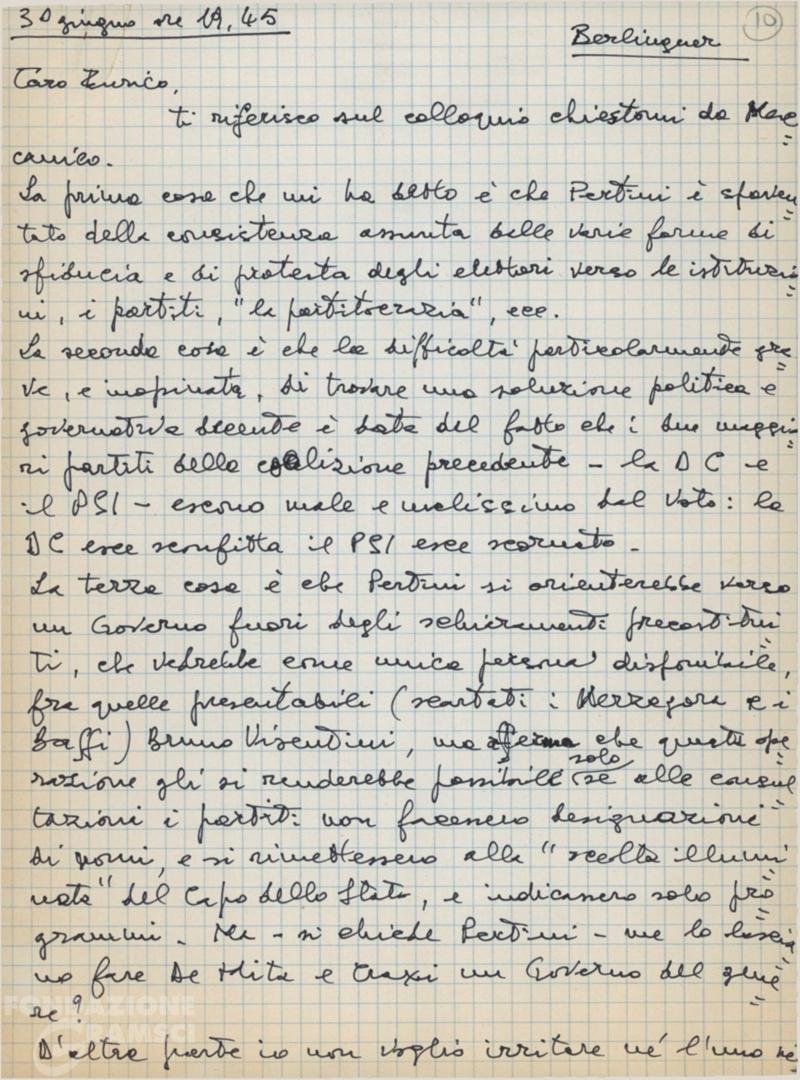 30 giugno ore 19,45
10
Berlinguer
Caro Enrico,
ti riferisco sul colloquio chiestomi da Mac=
canico.
La prima cosa che mi ha detto è che Pertini è spaven=
tato della consistenza assunta dalle varie forme di
sfiducia e di protesta degli elettori verso le istituzio=
ni, i partiti, "la partitocrazia", ecc.
La seconda cosa è che la difficoltà particolarmente gra=
ve, e inopinata, di trovare una soluzione politica e
governativa decente è data dal fatto che i due maggio=
ri partiti della coalizione precedente - la DC e
il PSI - escono male e malissimo dal voto: la
DC esce sconfitta il PSI esce scornato.
La terza cosa è che Pertini si orienterebbe verso
un Governo fuori degli schieramenti precostitui=
ti, che vedrebbe come unica persona disponibile,
fra quelle presentabili (scartati i Merzagora e i
Baffi) Bruno Visentini, ma che questa ope=
razione gli si renderebbe possibile solo se alle consul=
tazioni i partiti non facessero designazioni
di nomi, e si rimettessero alla "scelta illumi=
nata" del Capo dello Stato, e indicassero solo pro=
grammi. Ma - si chiede Pertini - me lo lascia=
no fare De Mita e Craxi un Governo del gene=
re?
D'altra parte io non voglio irritare né l'uno né
FONDAZIONE
GRAMSCI